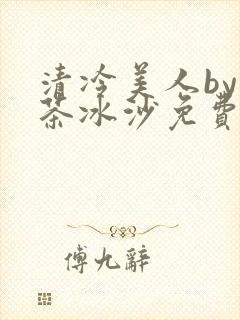 清冷美人by
茶冰沙免費
傅九辭